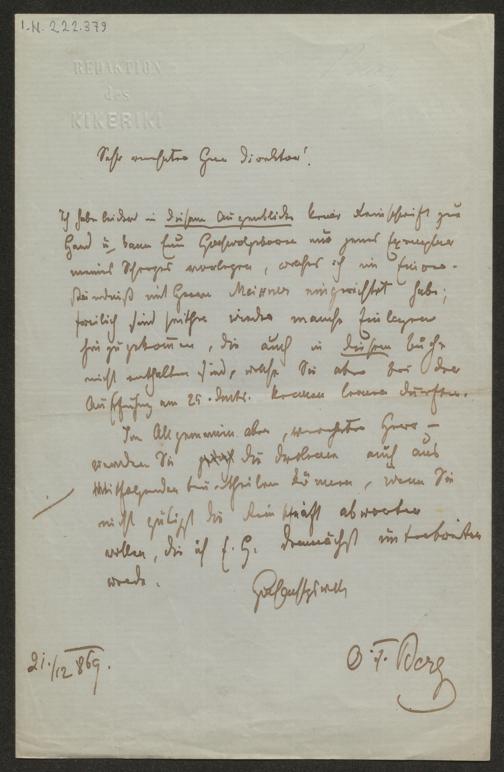 I.N. 222.379
REDAKTION
des
KIKERIKI
Sehr verehrter Herr Direktor!
Ich habe leider in diesem Augenblicke keine Reinschrift zur
Hand u. kann Euer Hochwolgeboren nur jenes Exemplar
meines vorlegen, welches ich im Einver-
ständniß mit Herrn Meixner eingerichtet habe;
freilich sind seither wieder manche Einlagen
hinzugekommen, die auch in diesem Buche
nicht enthalten sind, welche Sie aber bei der
Aufführung am 25. kennen lernen dürften.
Im Allgemeinen aber, verehrter Herr –
werden Sie die auch aus
Mitfolgendem beurtheilen können, wenn Sie
nicht gütigst die Reinschrift abwarten
wollen, die ich E. H. demnächst unterbreiten
werde.
Hochachtungsvoll
21./12 869.
O. F. Berg